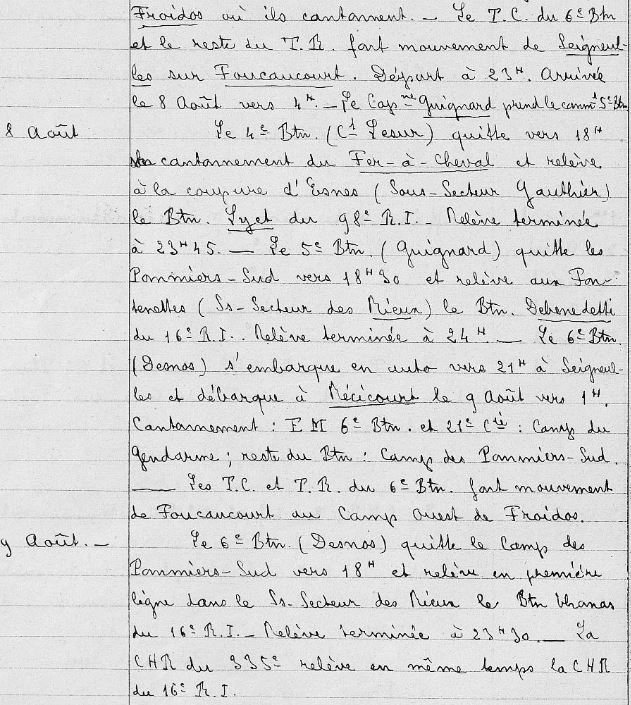 Froidos où ils cantonnent. — Le T.C. du 6e Btn
et le reste du T.R. font mouvement de Seigneul-
les sur Foucaucourt. Départ à 23H. Arrivée
le 8 Août vers 4H. — Le Capne Guignard prend le commt 5e Btn
8 Août
Le 4e Btn. (Ct Lesur) quitte vers 18H
cantonnement du Fer-à-Cheval et relève
à la coupure d'Esnes (Sous-Secteur Gauthier)
le Btn. Lyet du 98e R.I. — Relève terminée
à 23H45. — Le 5e Btn. (Guignard) quitte les
Pommiers-Sud vers 18H30 et relève aux Fon-
tenottes (Ss-Secteur des Rieux) le Btn. Debenedetti
du 16e R.I.. Relève terminée à 24H — Le 6e Btn.
(Desnos) s'embarque en auto vers 21H à Seigneul-
les et débarque à Récicourt le 9 Août vers 1H.
Cantonnement : E M 6e Btn. et 21e Cie : Camp du
Gendarme ; reste du Btn : Camp des Pommiers-Sud.
— Les T.C. et T.R. du 6e Btn. font mouvement
de Foucaucourt au Camp Ouest de Froidos.
9 Août. —
Le 6e Btn. (Desnos) quitte le Camp des
Pommiers-Sud vers 18H et relève en première
ligne dans le Ss-Secteur des Rieux le Btn
du 16e R.I. — Relève terminée à 23H30. — La
CHR du 335e relève en même temps la CHR
du 16e R.I.